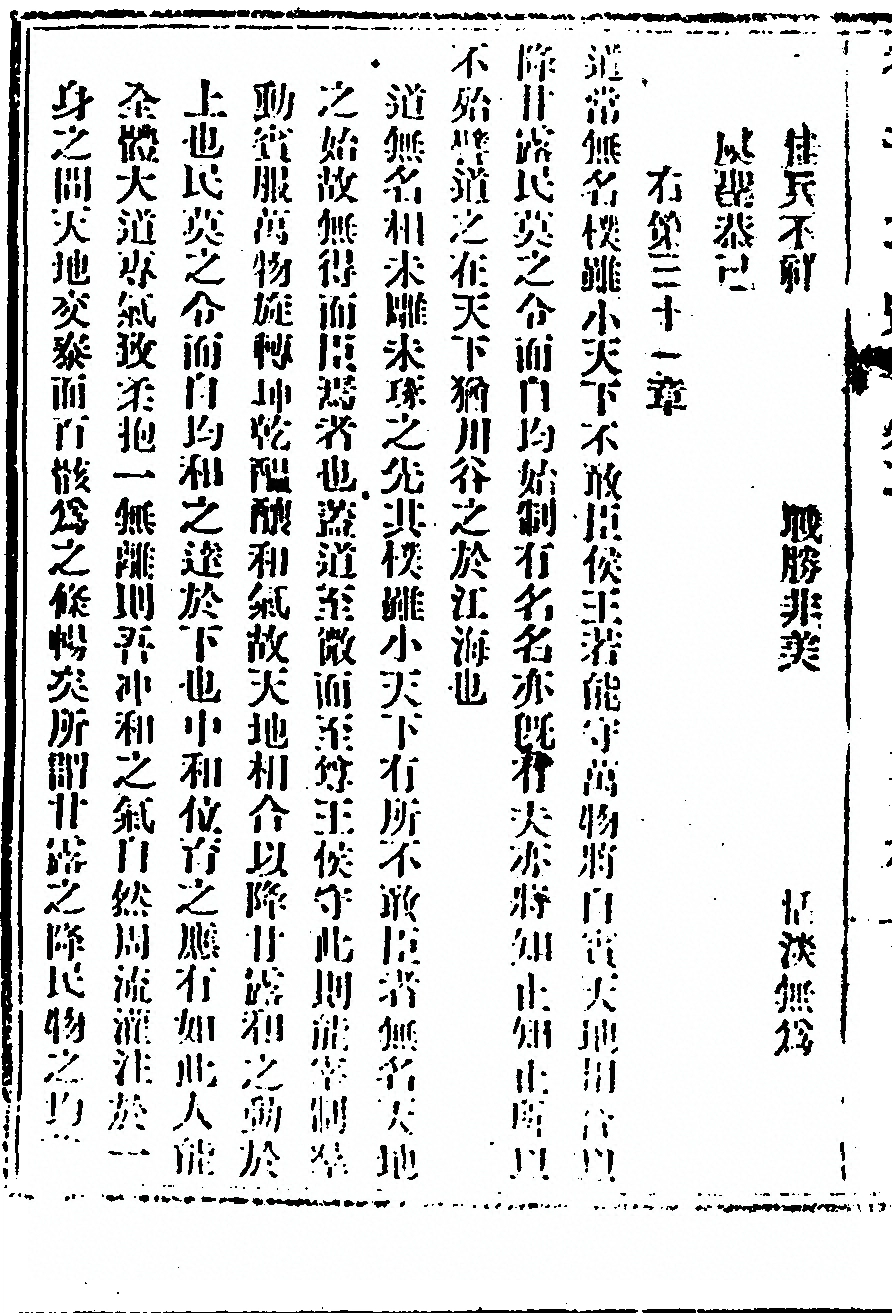 佳兵不祥　戰勝非美　恬淡無爲
以器恭己
右第三十一章
道常無名樸雖小天下不敢臣侯王若能守萬物將自賓天地相合以
降甘露民莫之令而自均始制有名名亦既有夫亦將知止知止所以
不殆譬道之在天下猶川谷之於江海也
道無名相未雕未琢之先其樸雖小天下有所不敢臣者無名天地
之始故無得而臣焉者也蓋道至微而至尊王侯守此則能宰制羣
動賓服萬物旋轉坤乾醞釀和氣故天地相合以降甘露和之動於
上也民莫之令而自均和之達於下也中和位育之應有如此人能
全體大道專氣致柔抱一無離則吾冲和之氣自然周流灌注於一
身之間天地交泰而百骸爲之條暢矣所謂甘露之降民物之均